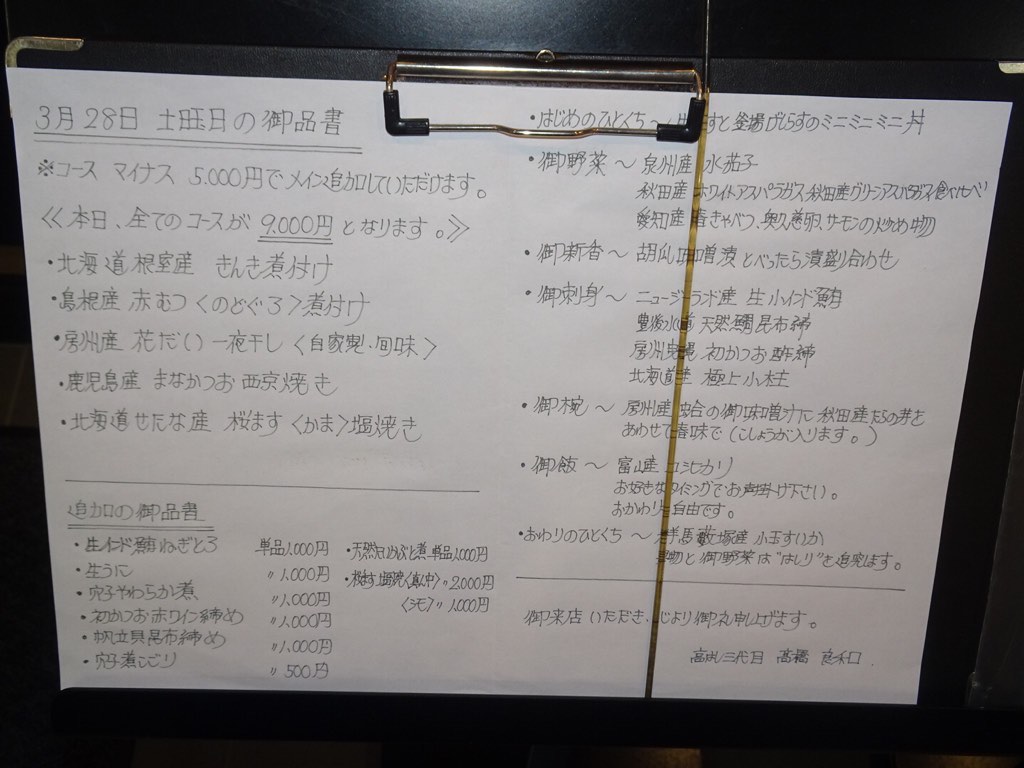 3月28日 土曜日の御品書
※コース マイナス 5.000円でメイン追加していただけます。
≪本日、全てのコースが 9.000円 となります。≫
・北海道根室産 きんき煮付け
・島根産 赤むつ〈のどぐろ〉煮付け
・房州産 花だい 一夜干し 〈自家製・旬味〉
・鹿児島産 まなかつお 西京焼き
・北海道せたな産 桜ます〈かま〉塩焼き
追加の御品書
・生インド鮪ねぎとろ 単品1.000円
・生うに 〃1.000円
・穴子やわらか煮 〃1.000円
・初かつお赤ワイン締め 〃1.000円
・帆立貝昆布締め 〃1.000円
・穴子煮こごり 〃500円
・天然たいかぶと煮 単品1.000円
・桜ます塩焼〈真中〉〃2.000円
〃1.000円
・はじめのひとくち〜 登場 しらすのミニミニミニ丼
・御野菜〜 泉州産 水茄子
秋田産 ホワイトアスパラガス・秋田産グリーンアスパラガス食べ比べ
愛知産 春きゃべつ、奥久慈卵、サーモンの炒め物
・御新香〜 胡瓜味噌漬とべったら漬盛り合わせ
・御刺身〜 ニュージーランド産 生小インド鮪
豊後水道 天然鯛昆布締
房州 初かつお酢締
北海道産 極上小柱
・御椀〜 房州産 蛤の御味噌汁に秋田産たらの芽と
あわせて春味で(こしょうが入ります。)
・御飯〜 富山産 コシヒカリ
お好きなタイミングでお声掛け下さい。
おかわり自由です。
・おわりのひとくち〜 群馬藪塚産 小玉すいか
果物と御野菜は"はしり"を追究ます。
御来店いただき、心より御礼申し上げます。
三代目 髙橋